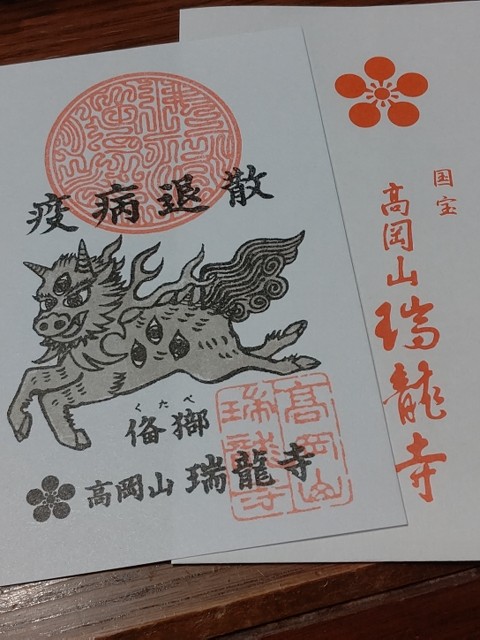 疫病退散
くたべ
俻𤟹
高岡山 瑞龍寺
高岡山
瑞龍寺
国宝
高岡山 瑞龍寺